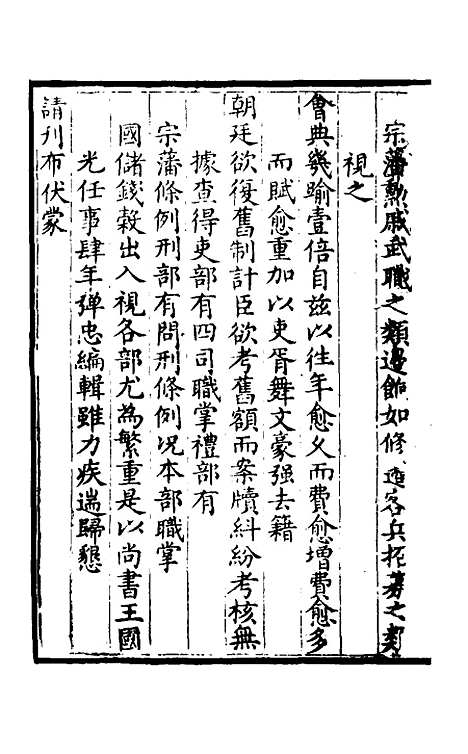 宗藩勲戚武職之類邊餉如修邊客兵招募之類
視之
會典幾踰壹倍自茲以往年愈久而費愈增費愈多
而賦愈重加以吏胥舞文豪强去籍
朝廷欲復舊制計臣欲考舊額而案牘糾紛考核無
據查得吏部有四司職掌禮部有
宗藩條例刑部有問刑條例况本部職掌
國儲錢穀出入視各部尤為繁重是以尚書王國
光任事肆年彈忠編輯雖力疾遄歸懇
請刋布伏蒙